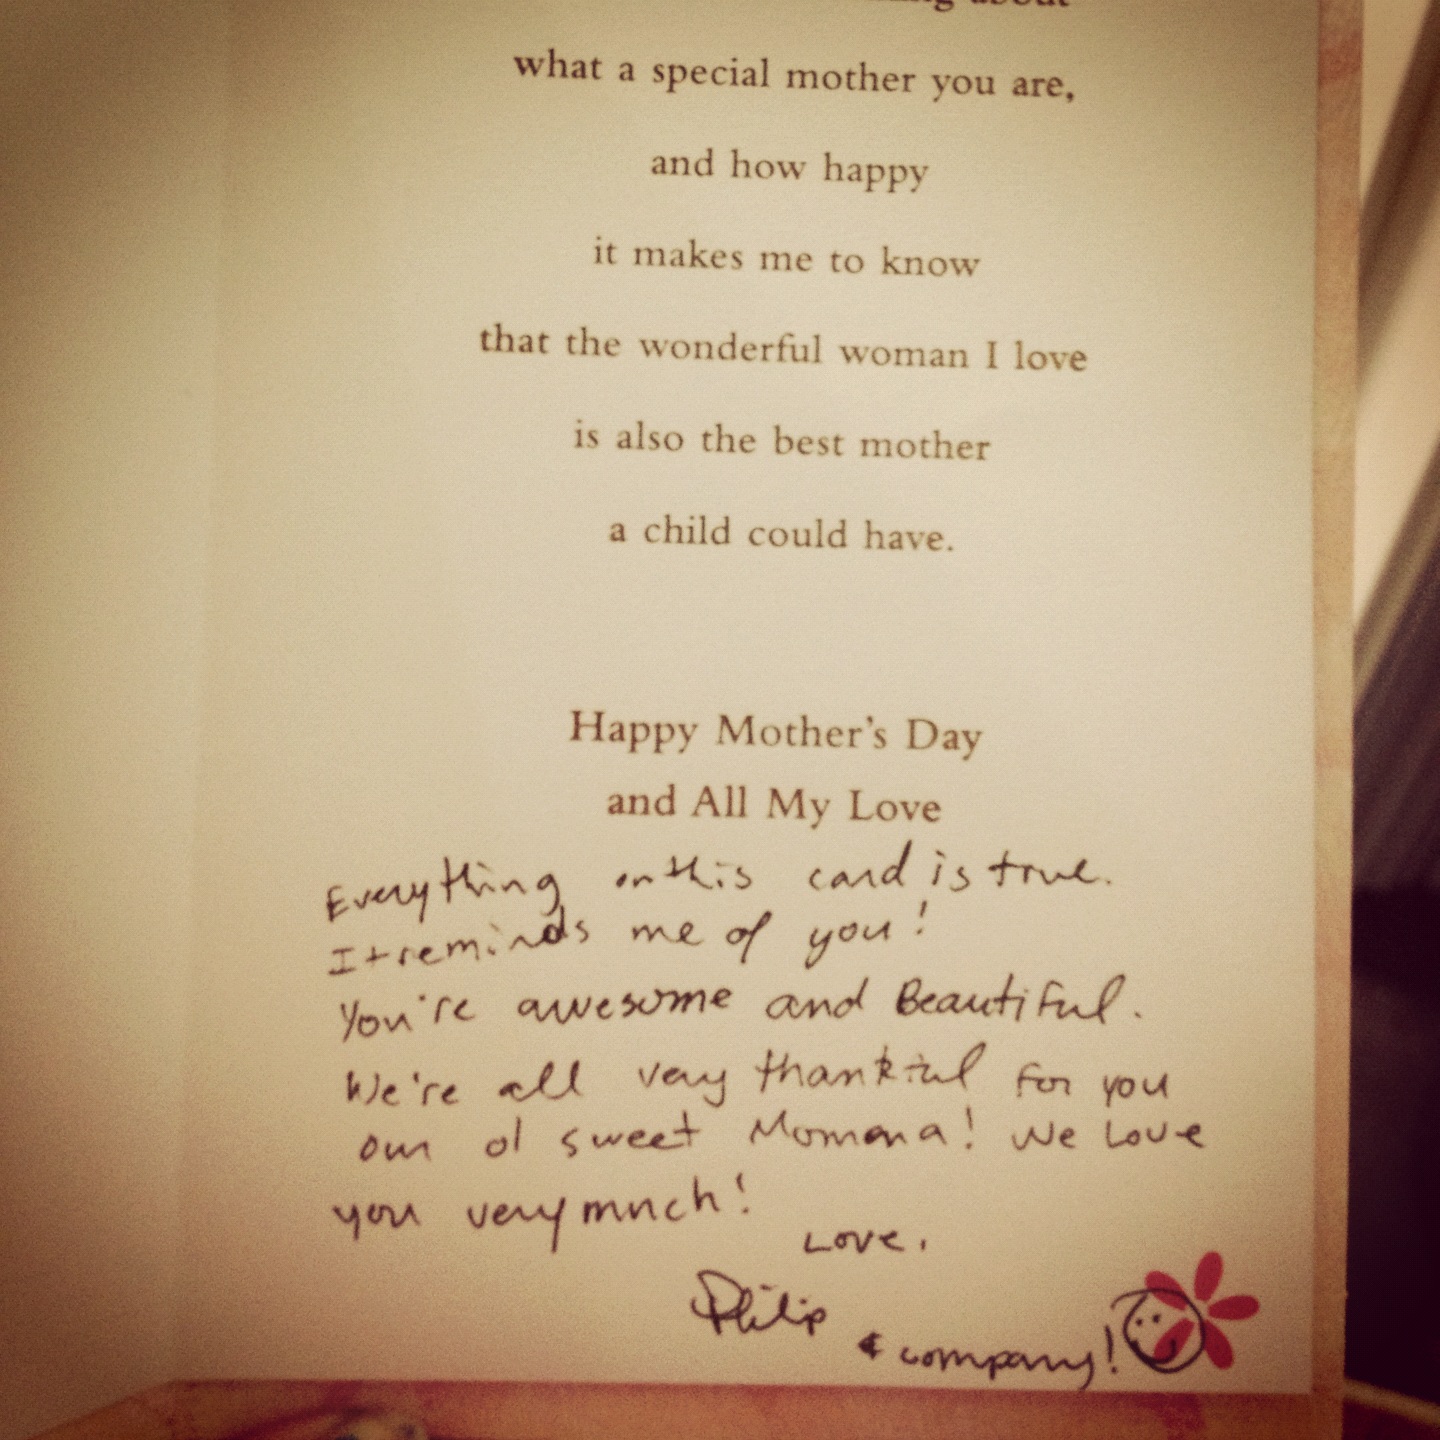 about
what a special mother you are,
and how happy
it makes me to know
that the wonderful woman I love
is also the best mother
a child could have.
Happy Mother's Day
and All My Love
Everything on this card is true.
It reminds me of you!
You're awesome and Beautiful.
We're all very thankful for you
our ol sweet Momana! We Love
you very much!
Love,
Philip
& company!